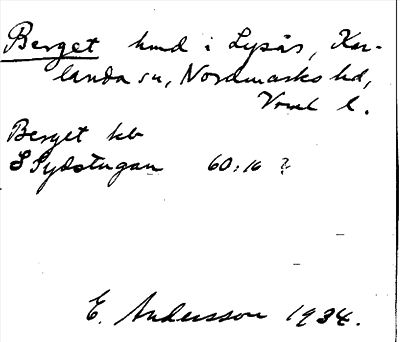 Berget hmd i Lysås, Kar-
landa sn, Nordmarks hd,
Vrml l.
Berget kb
S Sydstugan 60:16 ?
E. Andersson 1934.